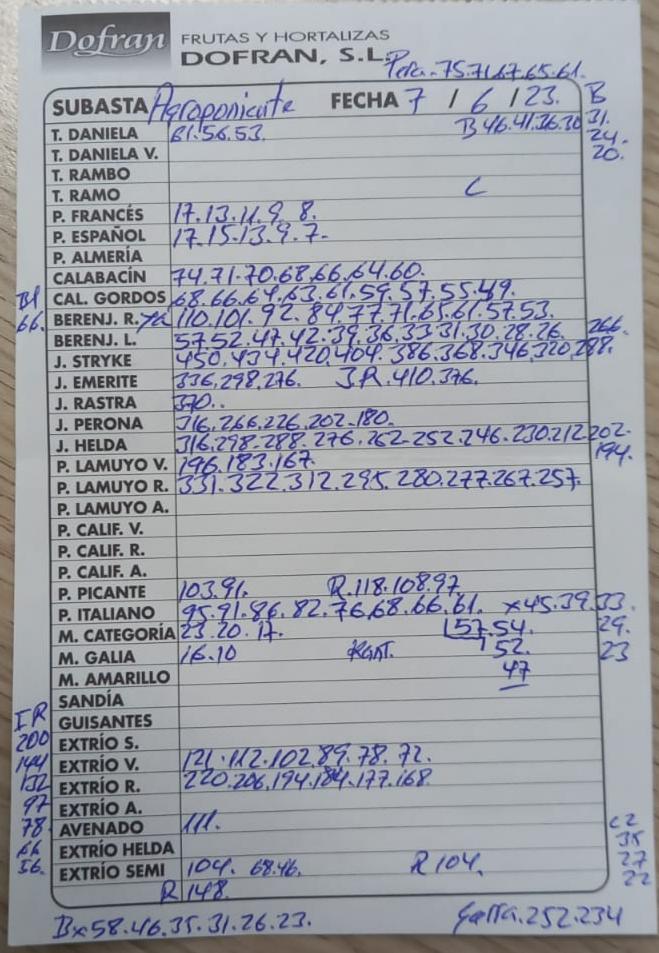 Dofran FRUTAS Y HORTALIZAS
DOFRAN, S.L.
Pera. 75.71.67.65.61.
SUBASTA Agroponiente FECHA 7 / 6 / 23. B
T. DANIELA 61.56.53. B 46.41.36.30 31.
24.
T. DANIELA V. 20.
T. RAMBO
T. RAMO C
P. FRANCÉS 17.13.11.9.8.
P. ESPAÑOL 17.15.13.9.7.
P. ALMERÍA
CALABACÍN 74.71.70.68.66.64.60.
Bl CAL. GORDOS 68.66.64.63.61.59.57.55.49.
66. BERENJ. R. 110.101.92.84.77.71.65.61.57.53.
BERENJ. L. 57.52.47.42.39.36.33.31.30.28.26. 266.
J. STRYKE 450.434.420.404.386.368.346.320.288.
J. EMERITE 336.298.276. J.R.410.376.
J. RASTRA 370..
J. PERONA 316.266.226.202.180.
J. HELDA 316.298.288.276.262.252.246.230.212.202.
194.
P. LAMUYO V. 196.183.167.
P. LAMUYO R. 331.322.312.295.280.277.267.257.
P. LAMUYO A.
P. CALIF. V.
P. CALIF. R.
P. CALIF. A.
P. PICANTE 103.91. R.118.108.97
P. ITALIANO 95.91.86.82.76.68.66.61. x45.39.33.
M. CATEGORÍA 23.20.17. 57.54. 29.
M. GALIA 16.10 52. 23
M. AMARILLO 47
SANDÍA
IR GUISANTES
200 EXTRÍO S.
144 EXTRÍO V. 121.112.102.89.78.72.
132 EXTRÍO R. 220.206.194.184.177.168.
97 EXTRÍO A.
78 AVENADO 111. C2
66 EXTRÍO HELDA 35
56. EXTRÍO SEMI 104. 68.46. R 104. 27
22
R 148.
Bx58.46.35.31.26.23. Garra.252.234